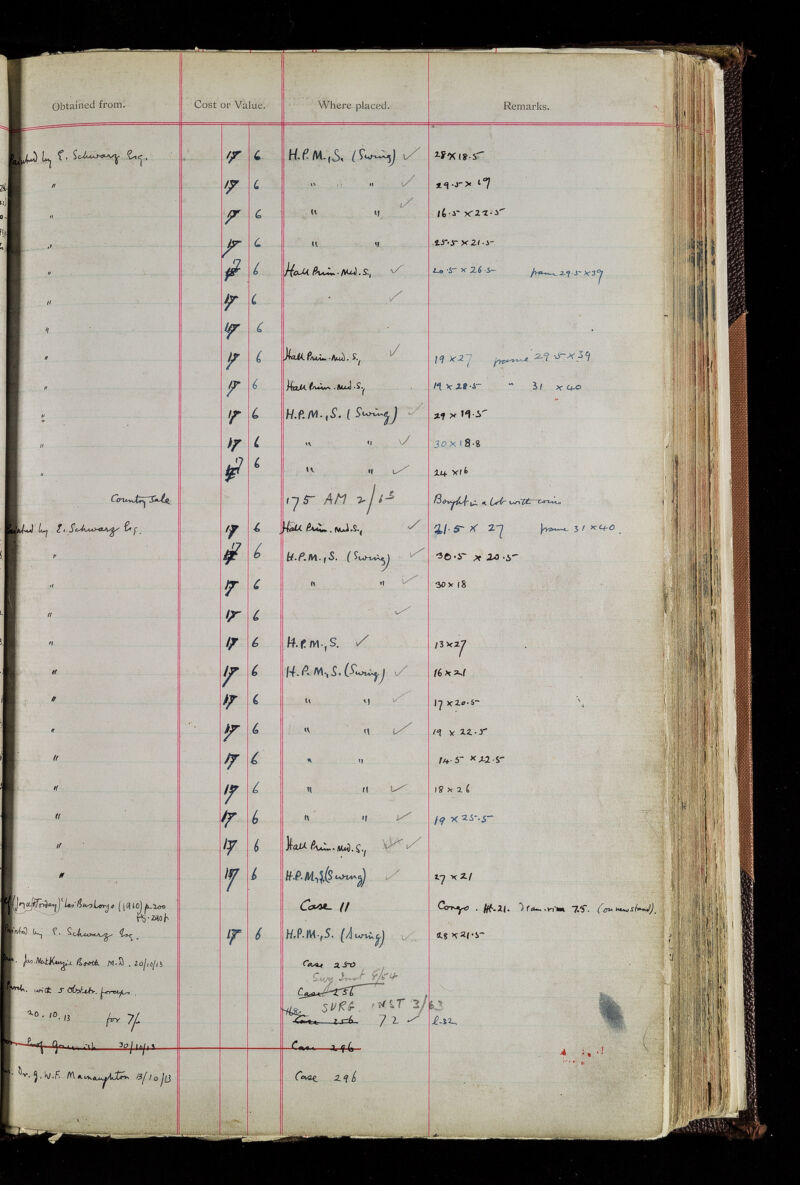 Obtained from. Cost or Value. Where placed. Remarks.
by E. Schwarz Esq. 17 6 H.P.M., S. (Swing) ✓ 28 × 18.5
" 17 6 " " ✓ 29.5 × 19
" 17 6 " " ✓ 16.5 × 22.5
" 17 6 " " 25.5 × 21.5
17 6 Hall Prim. Med. S., ✓ 20.5 × 26.5 frame 29.5 × 39
" 17 6 ✓
" 17 6
" 17 6 Hall Prim. Med. S., ✓ 19 × 27 frame 29.5 × 39
" 17 6 Hall Prim. Med. S., 19 × 28.5 " 31 × 40
" 17 6 H.P.M., S. (Swing) ✓ 29 × 19.5
" 17 6 " " ✓ 30 × 18.8
" 17 6 " " ✓ 24 × 16
County Sale 175 AM 2/ Bought in a lot with coins
by E. Schwarz Esq. 17 6 Hall Prim. Med. S., ✓ 21.5 × 27 frame 31 × 40.
" 17 6 H.P.M., S. (Swing) ✓ 30.5 × 20.5
" 17 6 " " ✓ 30 × 18
" 17 6 ✓
" 17 6 H.P.M., S. ✓ 13 × 27
" 17 6 H.P.M., S. (Swing) ✓ 16 × 21
" 17 6 " " ✓ 17 × 20.5
" 17 6 " " ✓ 19 × 22.5
" 17 6 " " 14.5 × 22.5
" 17 6 " " ✓ 18 × 26
" 17 6 " " ✓ 19 × 25.5
" 17 6 Hall Prim. Med. S., ✓
" 17 6 H.P.M., S (Swing) ✓ 27 × 21
(1910) p. 200 Case 11 Congo. Ht. 21. 7.5. (on new stand).
by E. Schwarz Esq. 17 6 H.P.M., S. (Swing) 28 × 21.5
Booth M.D. 20/10/13 Case 250
Surg Inst 9/54
with 5 Obstetr. forceps. Case 256
SURG INST 3/63
20.10.13 for 7/- Case 256 72 ✓ l. 32
30/10/13 Case 296
Dr. J.W.F. Macnaughton 13/10/13 Case 296